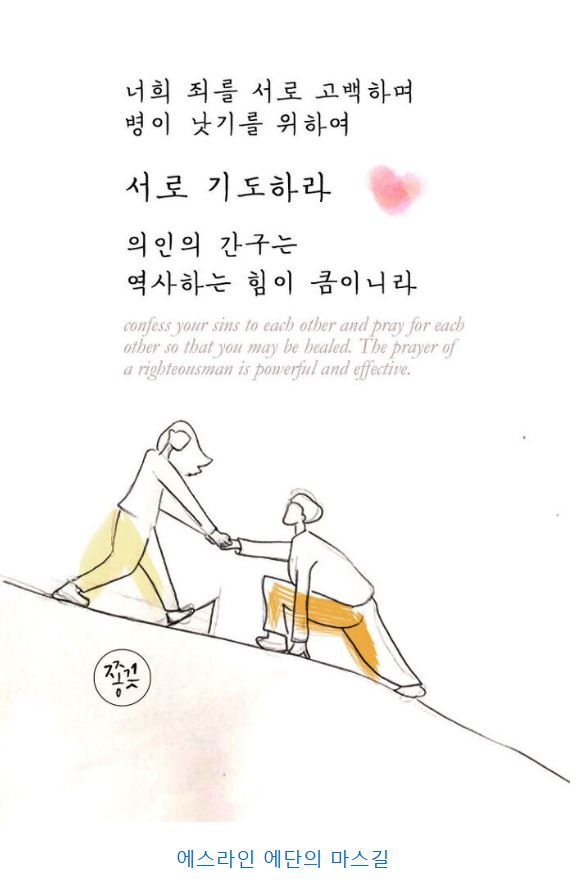 너희 죄를 서로 고백하며
병이 낫기를 위하여
서로 기도하라
의인의 간구는
역사하는 힘이 큼이니라
confess your sins to each other and pray for each
other so that you may be healed. The prayer of
a righteousman is powerful and effective.
에스라인 에단의 마스길